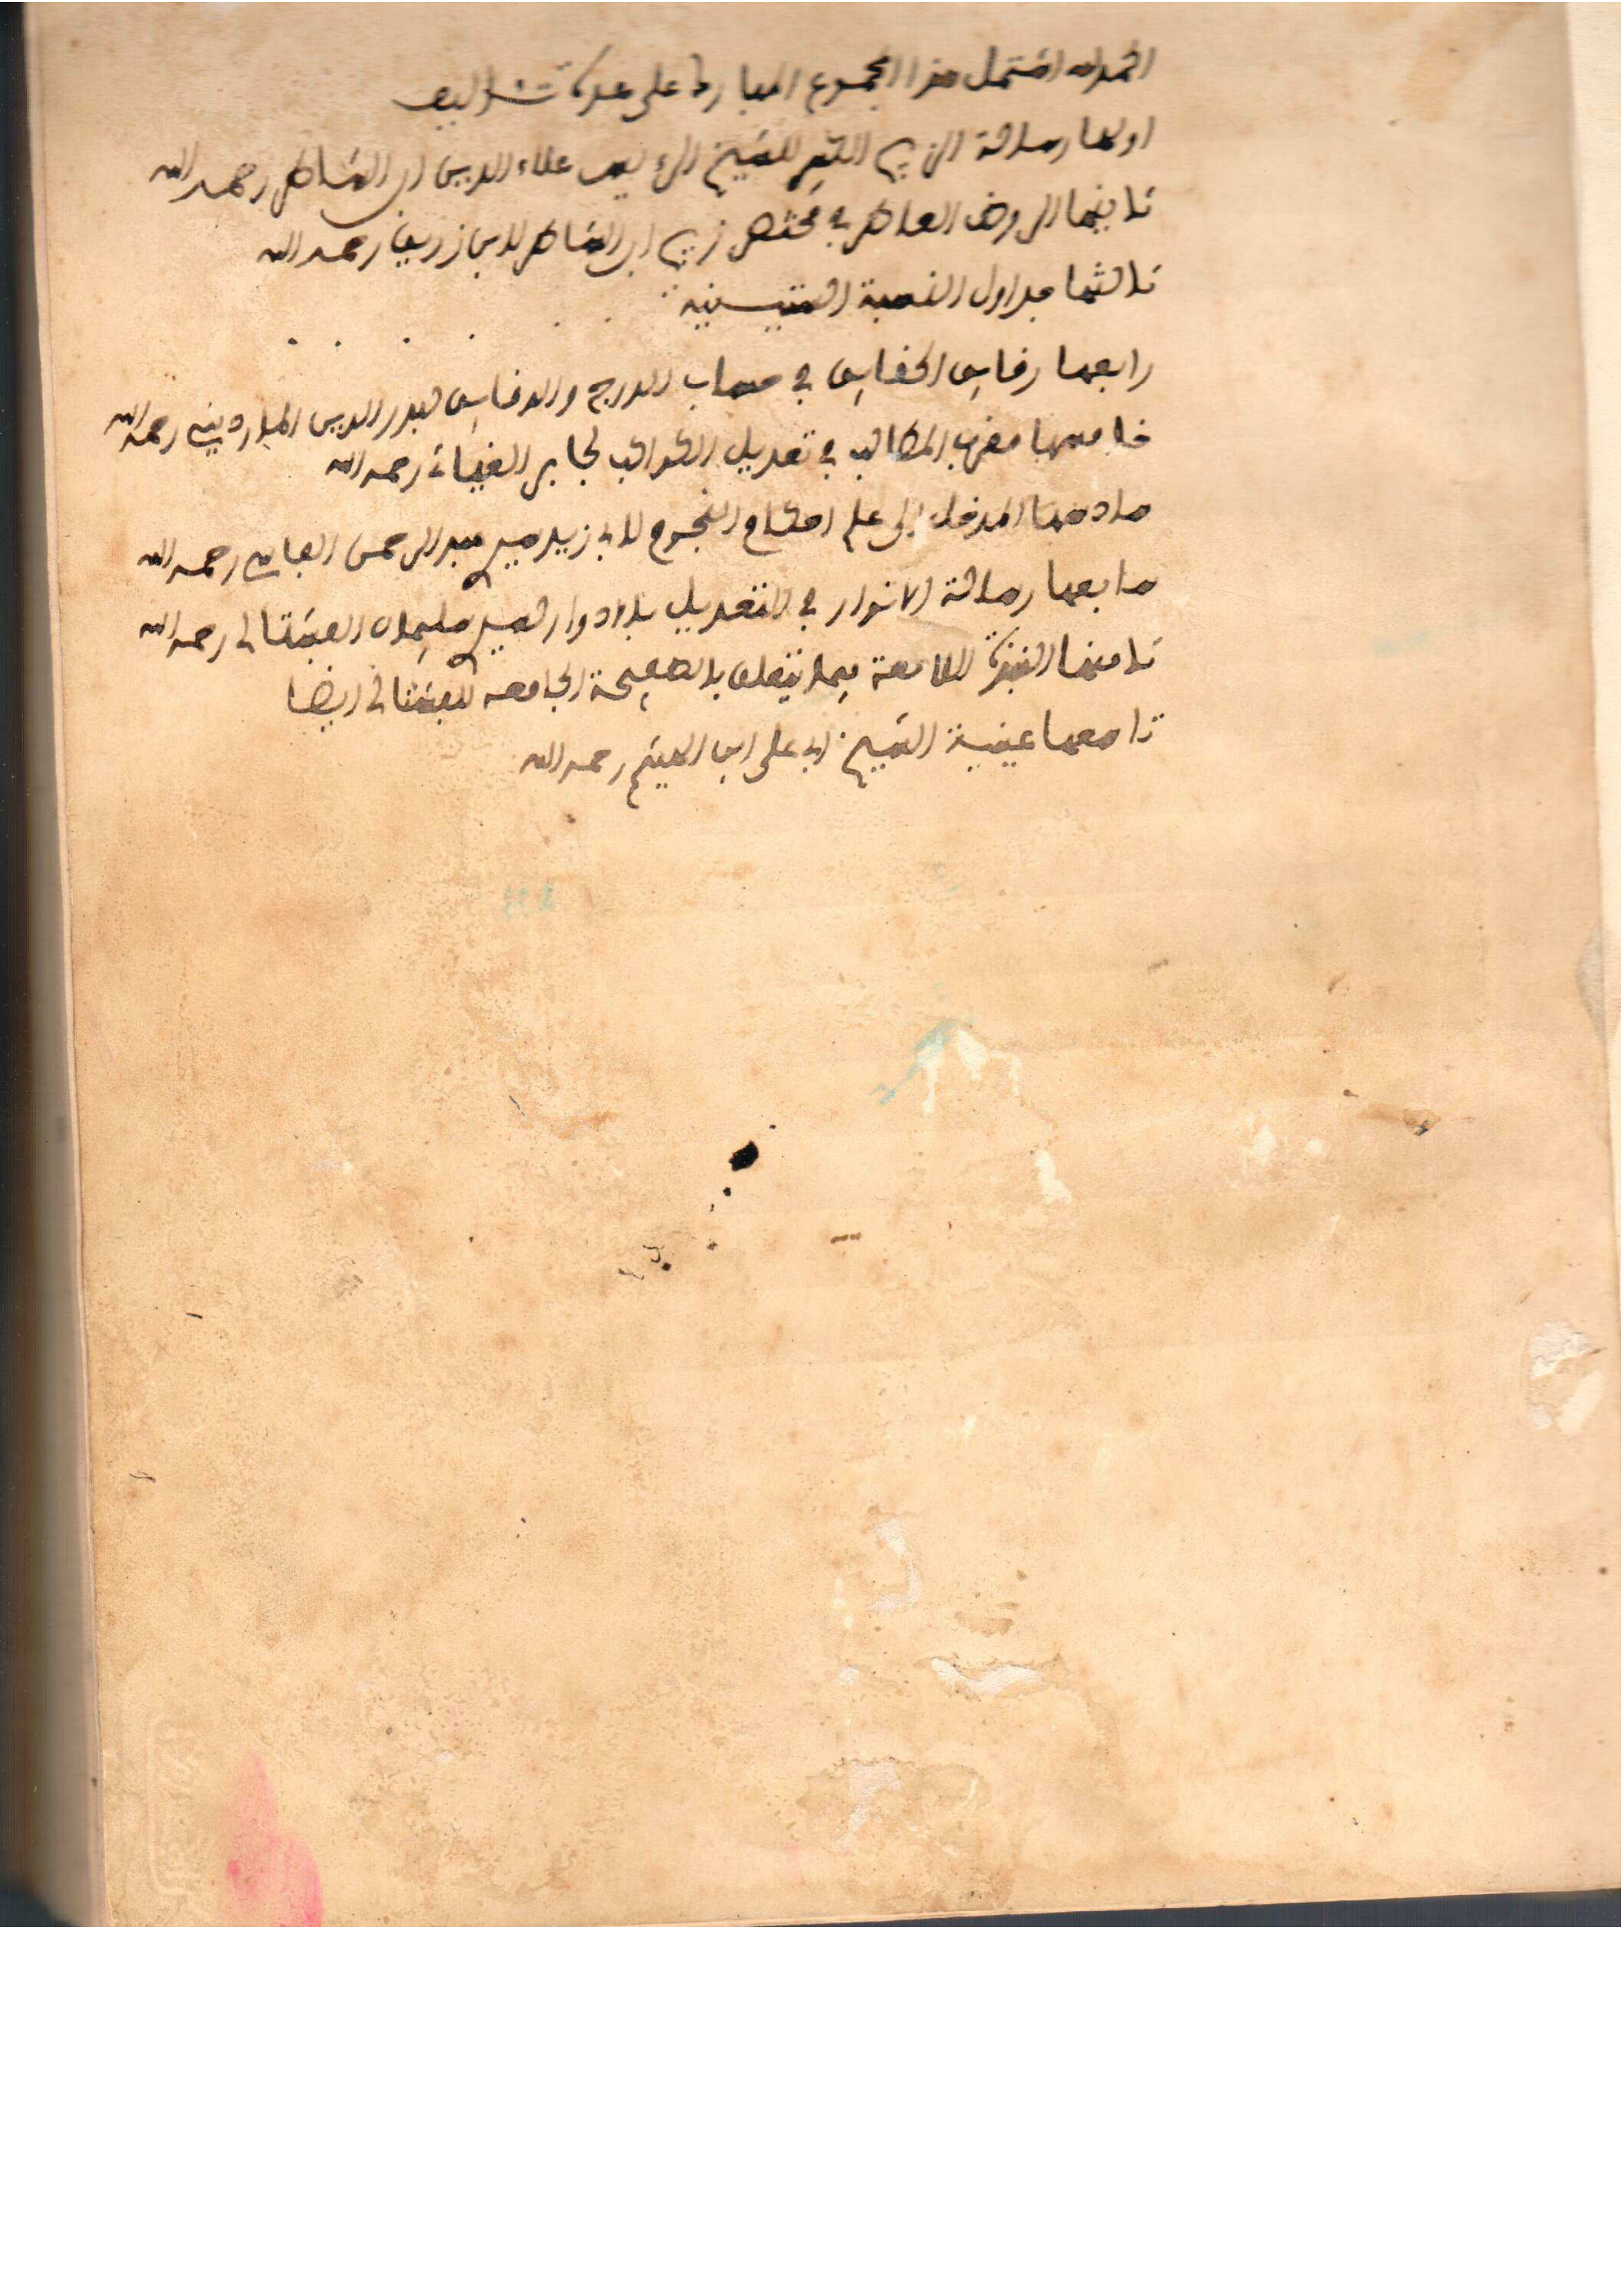 الحمد لله اشتمل هذا المجموع المبارك على عدة تئاليف
اولها رسالة الزيج للشيخ الرءيس علاء الدين ابن الشاطر رحمه الله
ثانيها الروض العاطر في مختصر زيج ابن الشاطر لابن زريق رحمه الله
ثالثها جداول النسبة الستينية
رابعها رقايق الحقايق في حساب الدرج والدقايق لبدر الدين المارديني رحمه الله
خامسها مقرب المطالب في تعديل الكواكب لجابر الغياثي رحمه الله
سادسها المدخل الى علم احكام النجوم لابي زيد سيد عبد الرحمن الفاسي رحمه الله
سابعها رسالة الانوار في التعديل بالادوار لسيد سليمان الفشتالي رحمه الله
ثامنها اللامعة فيما يتعلق بالصفيحة الجامعة للفشتالي ايضا
تاسعها عينية الشيخ ابي علي ابن الهيثم رحمه الله